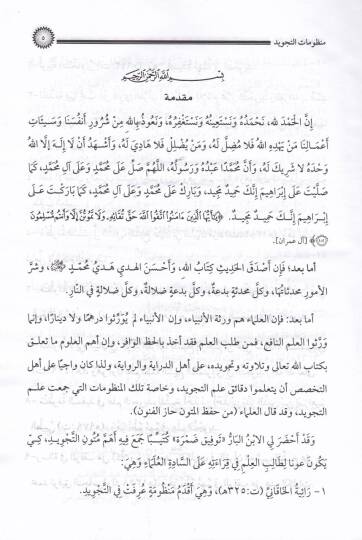 منظومات التجويد
٥
بسم الله الرحمن الرحيم
مقدمة
إِنَّ الْحَمْدَ لله، نَحْمَدُهُ وَنَسْتَعِينُهُ وَنَسْتَغْفِرُهُ، وَنَعُوذُ بِاللهِ مِنْ شُرُورِ أَنْفُسِنَا وَسَيِّئَاتِ
أَعْمَالِنَا مَنْ يَهْدِهِ اللهُ فَلَا مُضِلَّ لَهُ، وَمَنْ يُضْلِلْ فَلَا هَادِيَ لَهُ، وَأَشْهَدُ أَنْ لَا إِلَهَ إِلَّا اللهُ
وَحْدَهُ لَا شَرِيكَ لَهُ، وَأَنَّ مُحَمَّدًا عَبْدُهُ وَرَسُولُهُ، اللَّهُمَّ صَلِّ عَلَى مُحَمَّدٍ وَعَلَى آلِ مُحَمَّدٍ، كَمَا
صَلَّيْتَ عَلَى إِبْرَاهِيمَ إِنَّكَ حَمِيدٌ مَجِيد، وَبَارِكْ عَلَى مُحَمَّدٍ وَعَلَى آلِ مُحَمَّدٍ، كَمَا بَارَكْتَ عَلَى
إِبْرَاهِيمَ إِنَّكَ حَمِيدٌ مَجِيدٌ. ﴿يَٰٓأَيُّهَا ٱلَّذِينَ ءَامَنُوا۟ ٱتَّقُوا۟ ٱللَّهَ حَقَّ تُقَاتِهِۦ وَلَا تَمُوتُنَّ إِلَّا وَأَنتُم مُّسْلِمُونَ
﴿١٠٢﴾ [آل عمران].
أما بعد؛ فَإِن أَصْدَقَ الْحَدِيثِ كِتَابُ اللهِ، وَأَحْسَنَ الهدي هَدْيُ مُحَمَّدٍ ﷺ، وشرَّ
الأمورِ محدثاتُها، وكلُّ محدثةٍ بدعةٌ، وكلُّ بدعةٍ ضلالةٌ، وكلُّ ضلالةٍ في النارِ.
أما بعد: فإن العلماء هم ورثة الأنبياء، وإن الأنبياء لم يُوَرِّثوا درهمًا ولا دينارًا، وإنما
وَرَّثوا العلم النافع، فمن طلب العلم فقد أخذ بالحظ الوافر، وإن أهم العلوم ما تعلق
بكتاب الله تعالى وتلاوته وتجويده، على أهل الدراية والرواية، ولذا كان واجبًا على أهل
التخصص أن يتعلموا دقائق علم التجويد، وخاصة تلك المنظومات التي جمعت علم
التجويد، وقد قال العلماء (من حفظ المتون حاز الفنون).
وَقَدْ أَحْضَرَ لِي الابْنُ البَارُّ «تَوفِيق ضَمْرَة» كُتَيِّبًا جَمَعَ فِيهِ أَهَمَّ مُتُونِ التَّجْوِيدِ، كَيْ
يَكُونَ عَونًا لِطَالِبِ العِلْمِ فِي قِرَاءَتِهِ عَلَى السَّادَةِ العُلَمَاءِ وَهِيَ:
١- رَائِيَّةُ الخَاقَانِيِّ (ت:٣٢٥هـ)، وَهِيَ أَقْدَمُ مَنْظُومَةٍ عُرِفَتْ فِي التَّجْوِيدِ.